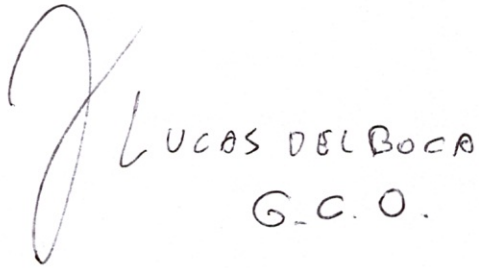 LUCAS DELBOCA
G.C.O.